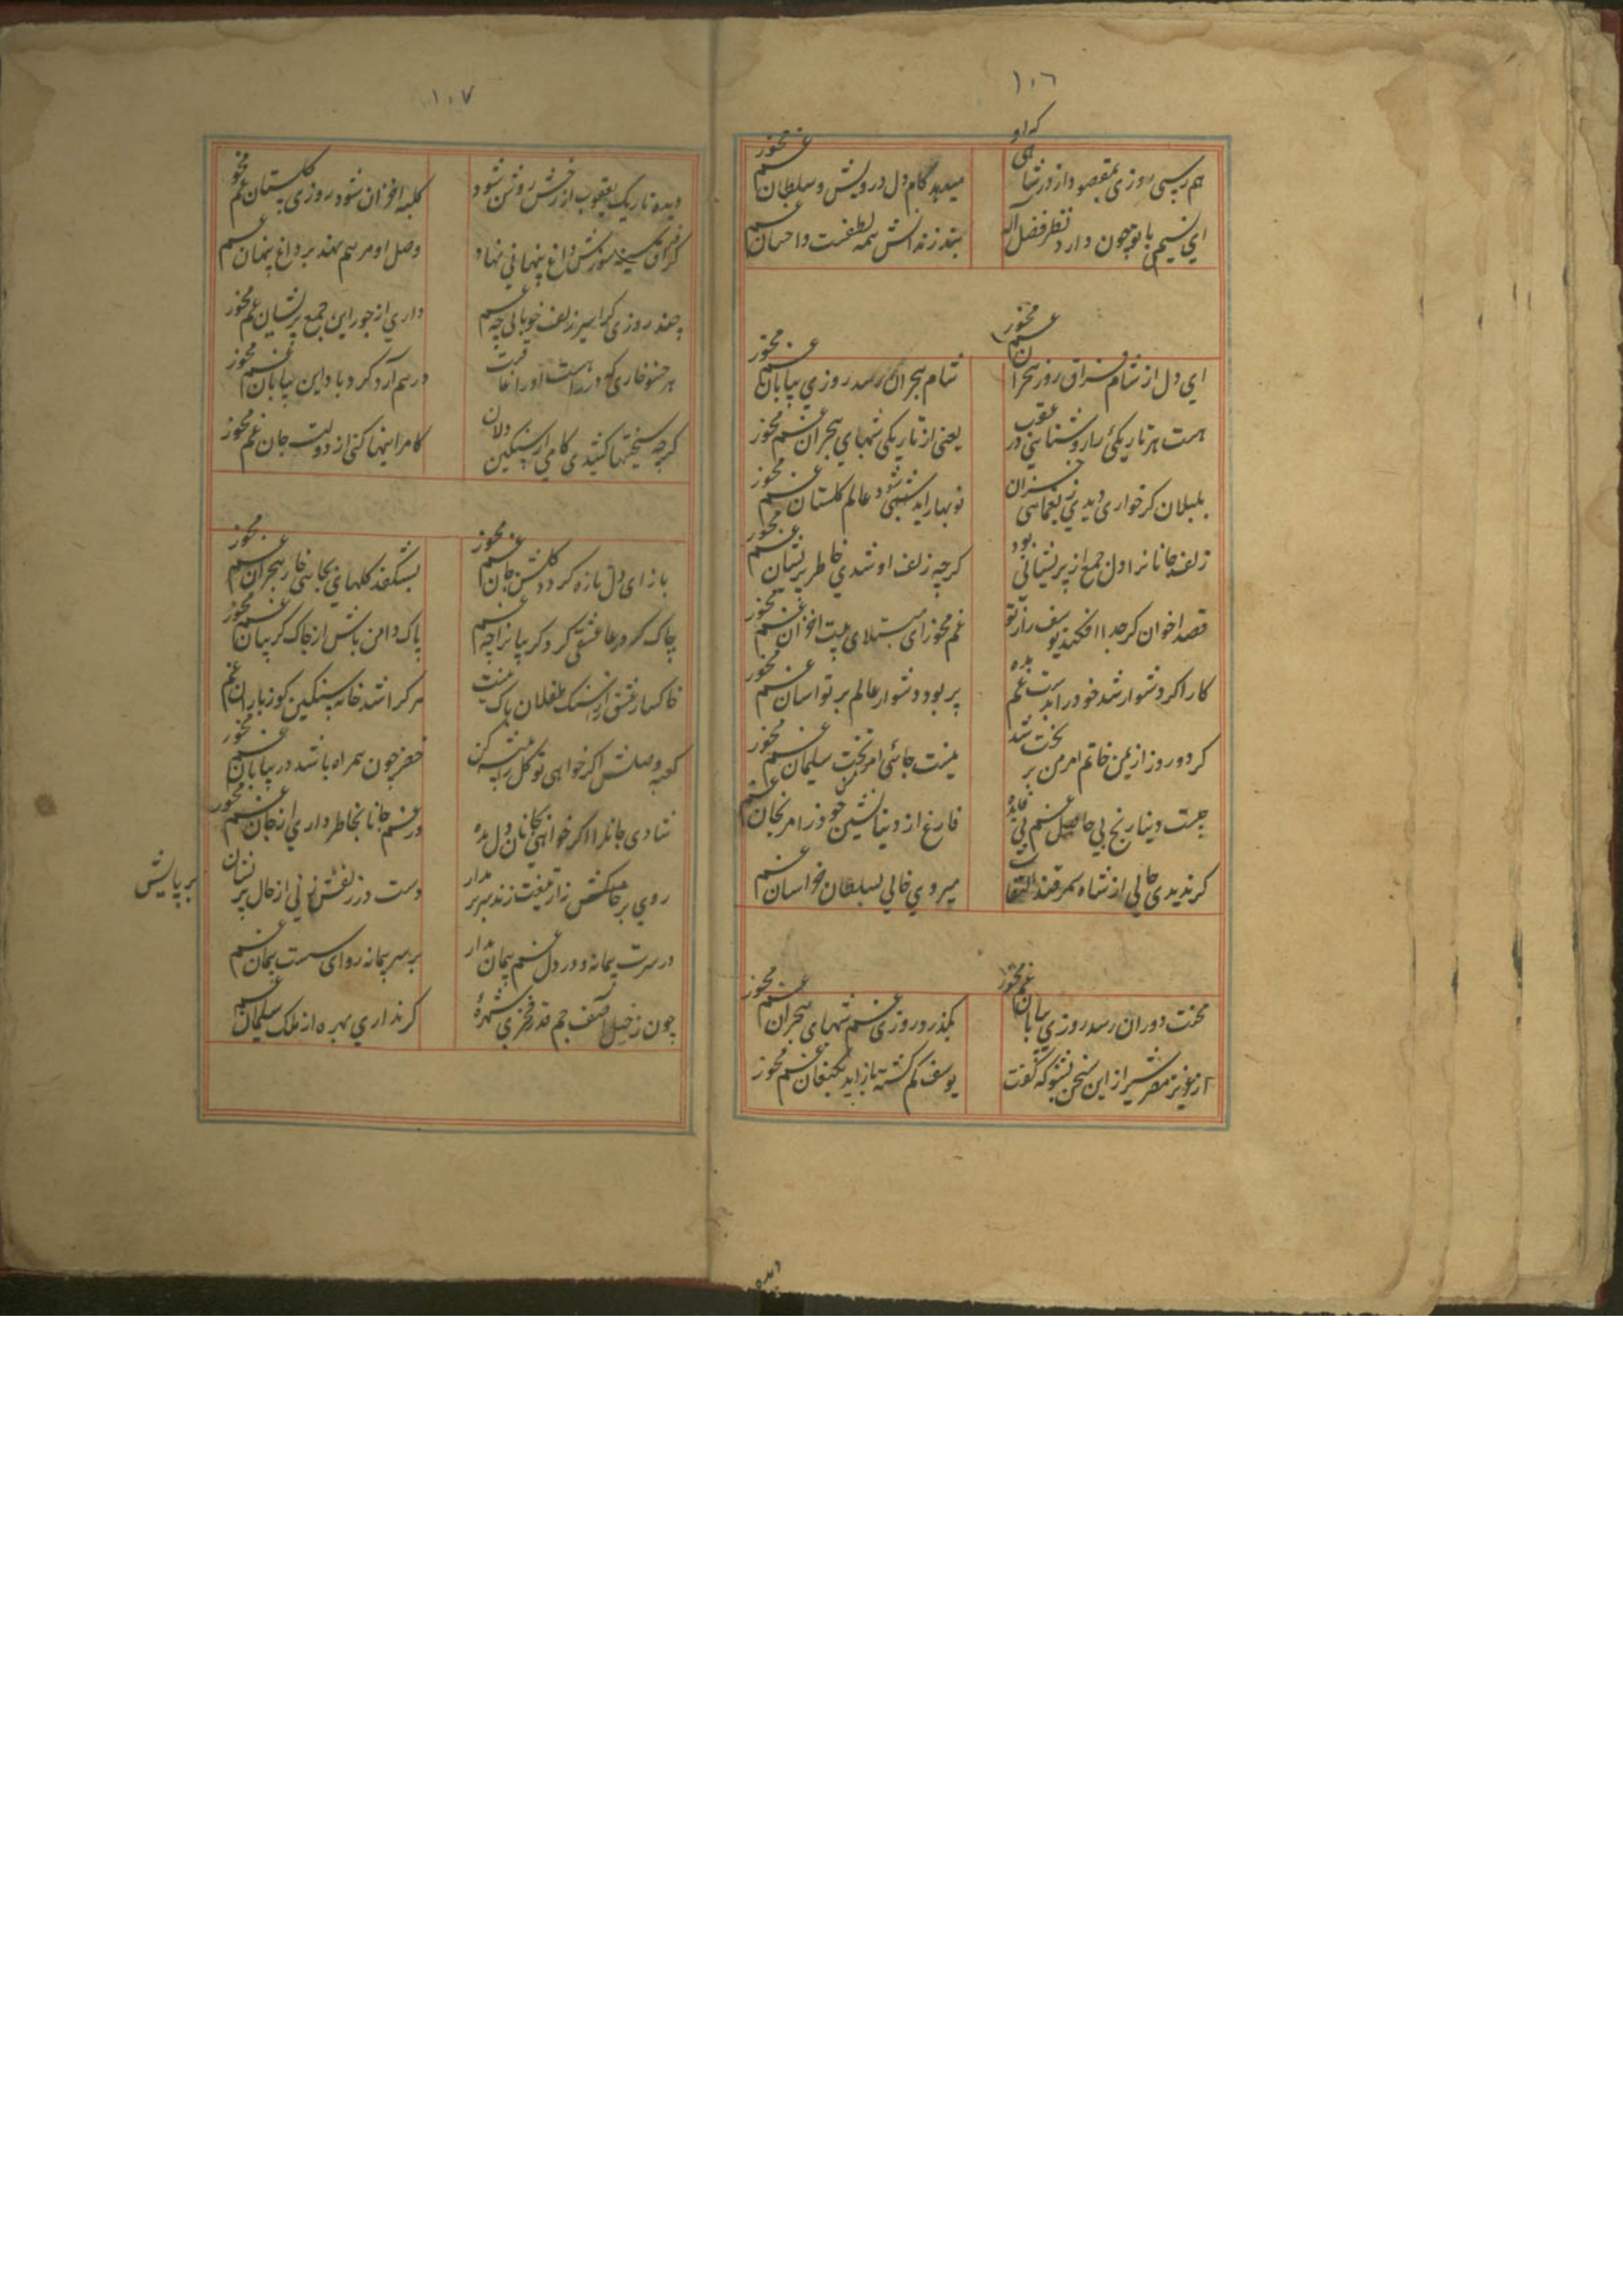 ١٠٦
هم رسی روزی بمقصود از در شاهی که او
میدهد کام دل درویش و سلطان غم مخور
ای نسیمی با تو چون دارد نظر فضل اله
بند زندانش همه لطفست و احسان غم
ای دل از شام فراق روز هجران غم مخور
شام هجران رسد روزی بپایان غم مخور
هست هر تاریکئ را روشنایی در عقب
یعنی از تاریکی شبهای هجران غم مخور
بلبلان کر خواری دیدی ز یغمای خزان
نوبهار اید شود عالم کلستان غم مخور
زلف جانانرا دل جمع از پریشانی بود
کرچه زلف او شدی خاطر پریشان غم مخور
قصد اخوان کر جدا افکند یوسف را ز تو
غم مخور ای مبتلای بیت احزان غم مخور
کار اکر دشوار شد خود را بدست غم مده
پر بود دشوار عالم بر تو اسان غم مخور
کر دو روز از یمن خاتم اهرمن بر تخت شد
نیست جائی اهرمن تخت سلیمان غم مخور
چیست دنیا رنج بی حاصل غم بی فایده
فارغ از دنیا نشین خود را مرنجان غم
کر ندیدی حالی از شاه سمرقند التفات
میروی خالی بسلطان خراسان غم
محنت دوران رسد روزی بپایان غم مخور
بکذرد روزی غم شبهای هجران غم مخور
از عزیز مصر شیراز این سخن بشنو که کفت
یوسف کم کشته باز اید بکنعان غم مخور
دیده
١٠٧
دیده تاریک یعقوب از رخش روشن شود
کلبه احزان شود روزی کلستان غم مخور
کر فراق سینه سوزش داغ پنهانی نهاد
وصل او مرهم نهد بر داغ پنهان غم
چند روزی کر اسیر زلف خوبانی چه غم
داری از جور این جمع پریشان غم مخور
هر خس و خاری که در راهست او را عاقبت
درهم آرد کرد باد این بیابان غم مخور
کرچه سختیها کشیدی کامی از سنکین دلان
کامرانیها کنی از دولت جان غم مخور
باز ای دل تازه کردد کلشن جان غم مخور
بشکفد کلهای بجای خار هجران غم مخور
چاک کر در عاشقی کردد کریبانرا چه غم
پاک دامن باش از چاک کریبان غم مخور
خاکسار عشق را از سنک طفلان باک نیست
هر کرا شد خانه سنکین کو ز باران غم
کعبه وصلش اکر خواهی توکل پیشه کن
خضر چون همراه باشد در بیابان غم مخور
شادی جانرا اکر خواهی بجانان دل بده
در غم جانا بخاطر داری از جان غم مخور
روی بر خاکش نه ار تیغت زند سر بر مدار
دست در زلفش زنی از حال پر نشان
بر پایش
در سرت پیمانه و در دل غم پیمان مدار
بر سر پیمانه رو ای سست پیمان غم
چون ز خیل آصف جم قدر فخری شهرهٔ
کر نداری بهره از ملک سلیمان غم